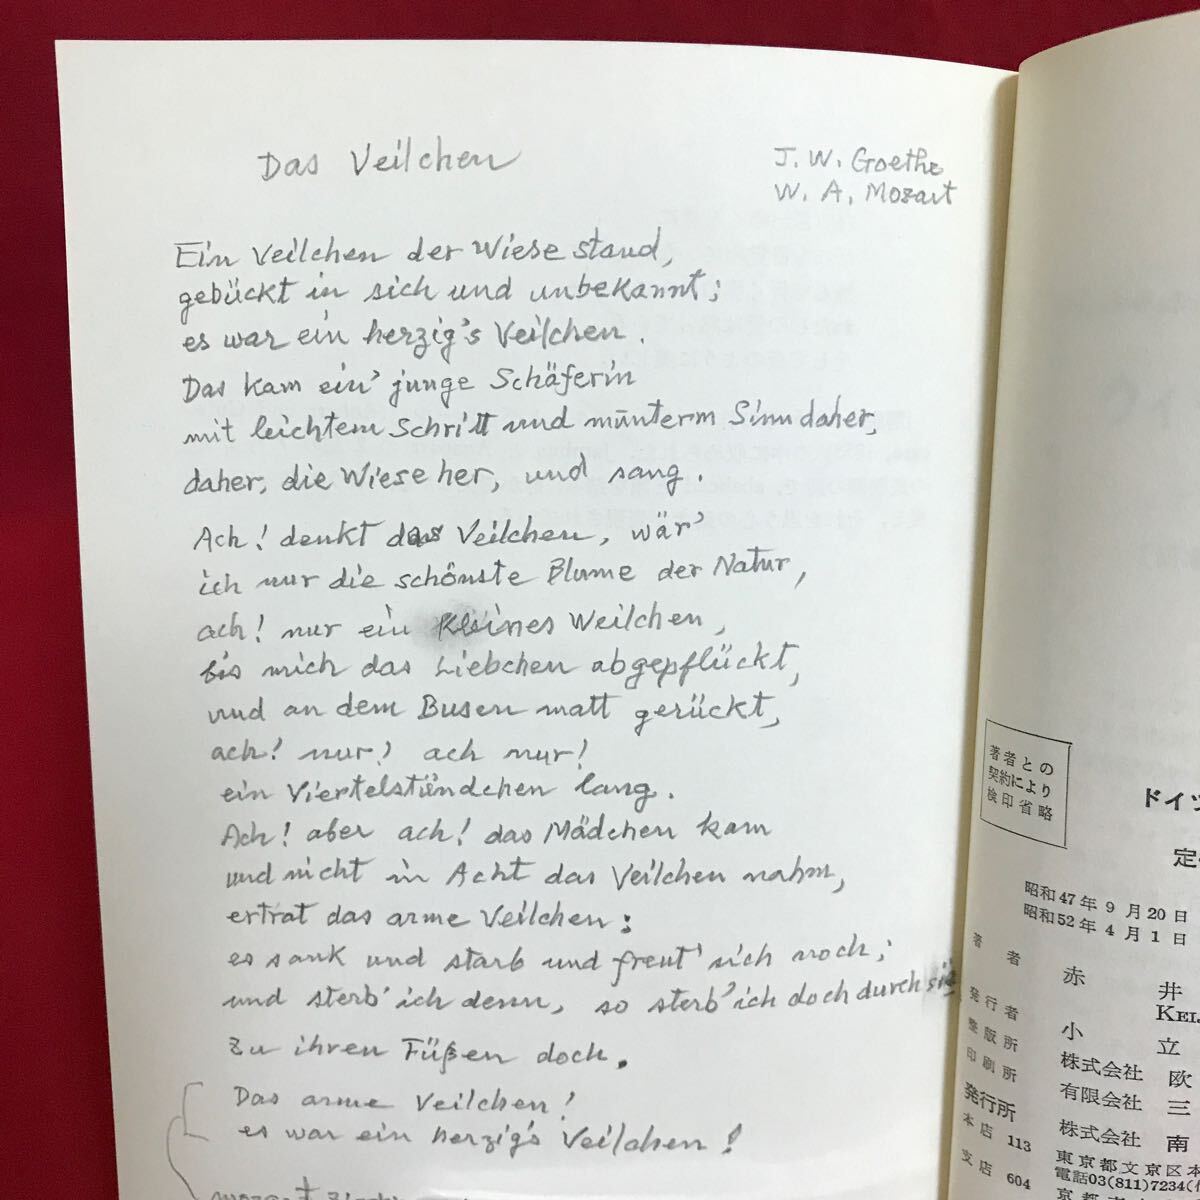 Das Veilchen
J. W. Goethe
W. A. Mozart
Ein Veilchen der Wiese stand,
gebückt in sich und unbekannt;
es war ein herzig's Veilchen.
Das kam ein' junge Schäferin
mit leichtem Schritt und munterm Sinn daher,
daher, die Wiese her, und sang.
Ach! denkt das Veilchen, wär'
ich nur die schönste Blume der Natur,
ach! nur ein kleines Weilchen,
bis mich das Liebchen abgepflückt,
und an dem Busen matt gerückt,
ach! nur! ach nur!
ein Viertelstündchen lang.
Ach! aber ach! das Mädchen kam
und nicht in Acht das Veilchen nahm,
ertrat das arme Veilchen;
es sank und starb und freut' sich noch;
und sterb' ich denn, so sterb' ich doch durch sie,
zu ihren Füßen doch.
Das arme Veilchen!
es war ein herzig's Veilchen!
著者との
契約により
検印省略
ドイツ
定
昭和47年9月20日
昭和52年4月1日
著者 赤井
KEI
発行者 小立
整版所 株式会社 欧
印刷所 有限会社 三
発行所 株式会社 南
本店 113 東京都文京区本
電話03(811)7234(
支店 604 京都